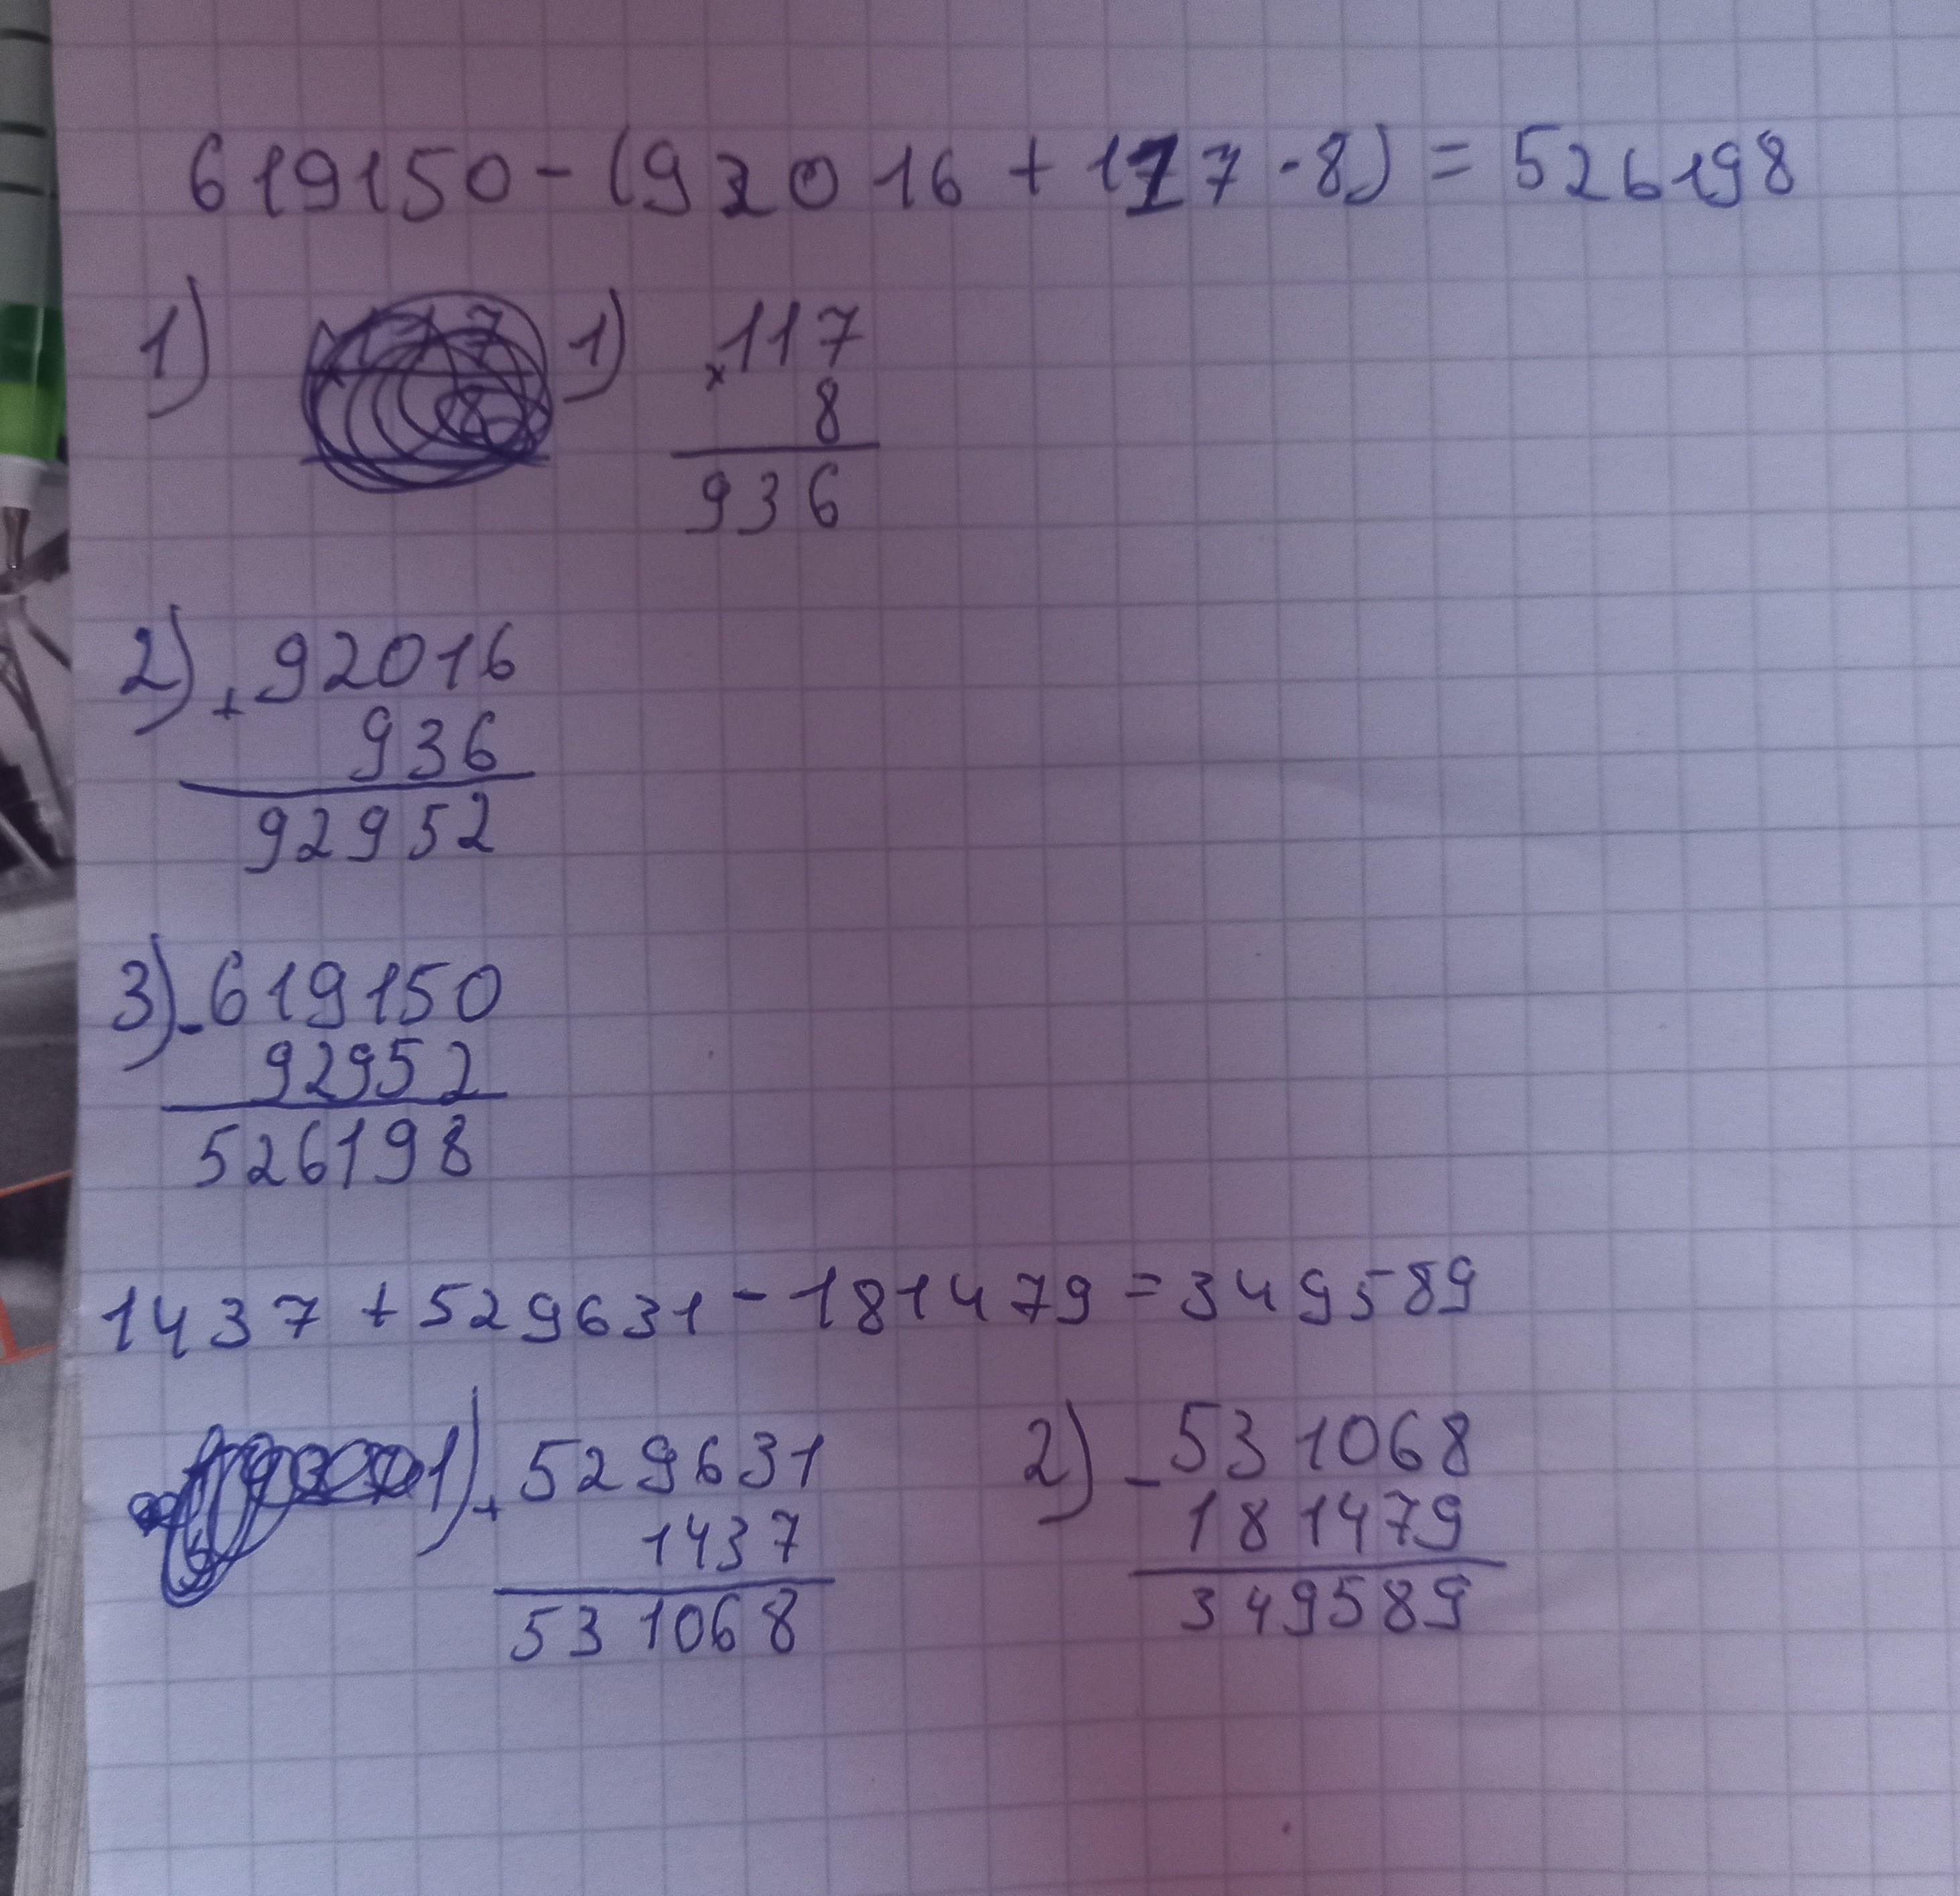 619150-(92016+117·8)=526198
1) 1) ×117
8
936
2) +92016
936
92952
3) -619150
92952
526198
1437+529631-181479=349589
1) +529631
1437
531068
2) -531068
181479
349589